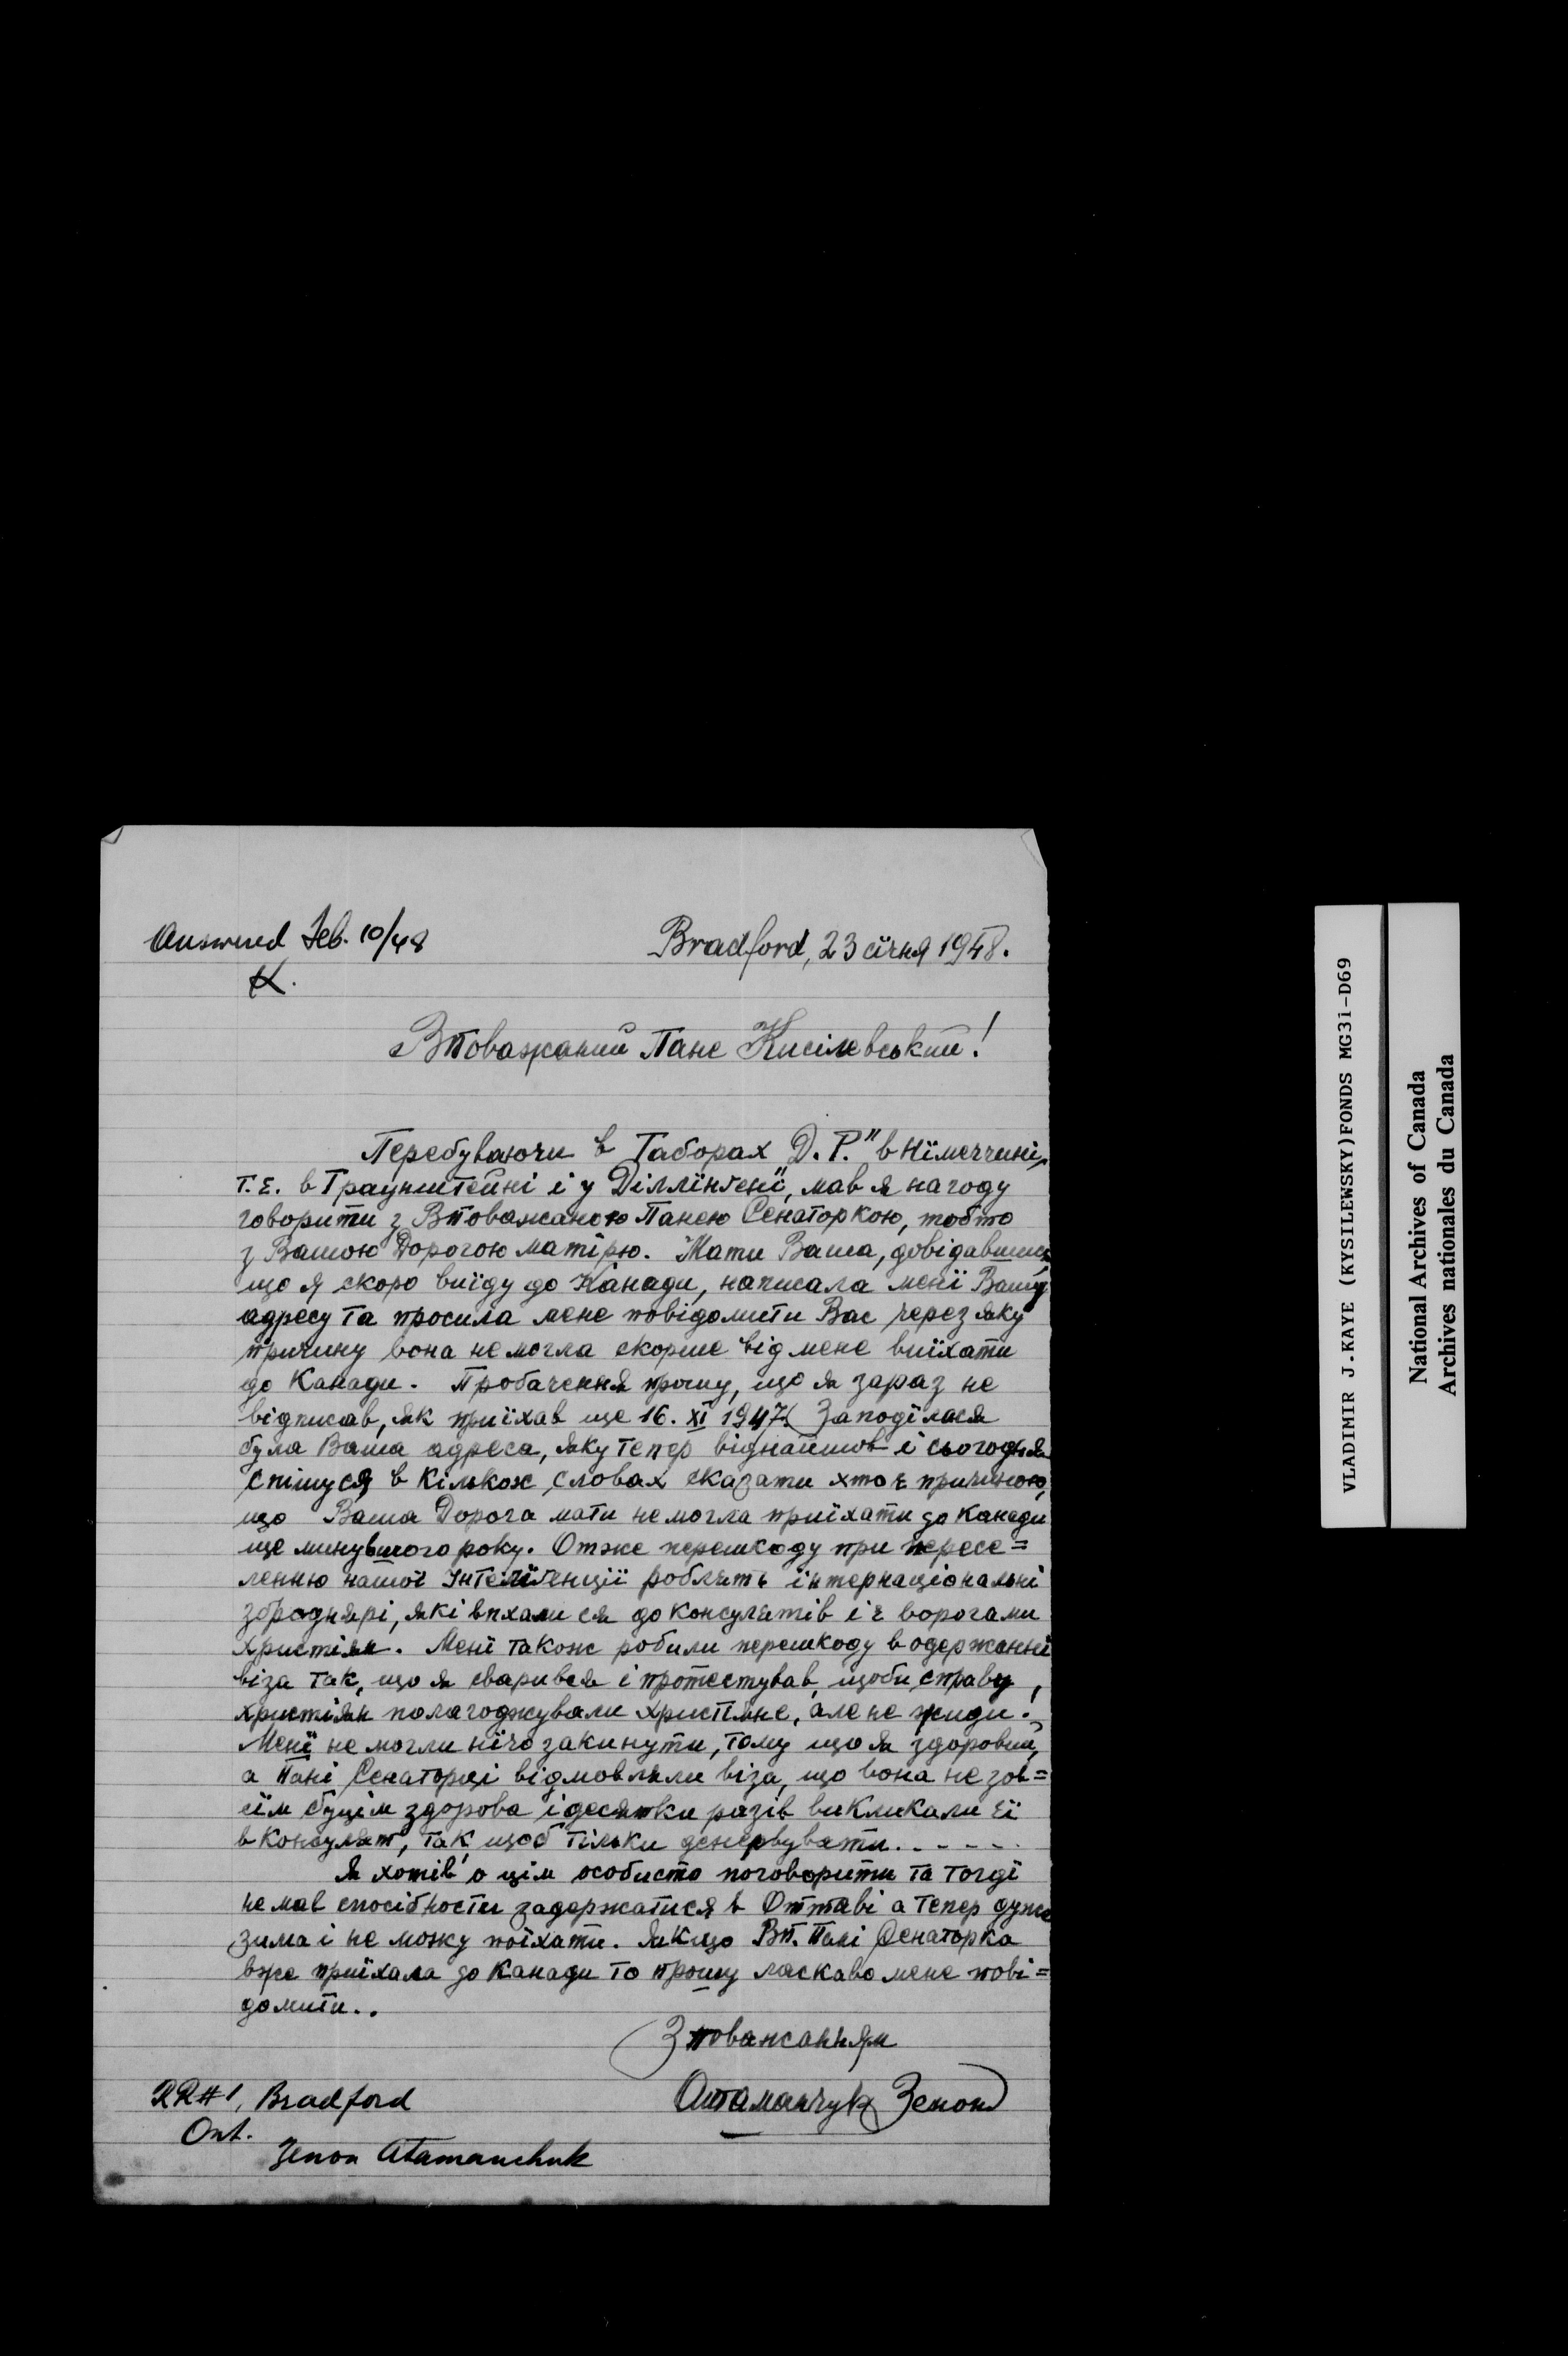 Answered Feb. 10/48
K.
Bradford, 23 січня 1948.
ВПоважаний Пане Кисілевський!
Перебуваючи в Таборах „D.P." в Німеччині,
т.є. в Траунштейні і у Діллінґені, мав я нагоду
говорити з ВПоважаною Панею Сенаторкою, тобто
з Вашою Дорогою матірю. Мати Ваша, довідавшись,
що я скоро виїду до Канади, написала мені Вашу
адресу та просила мене повідомити Вас через яку
причину вона не могла скорше від мене виїхати
до Канади. Пробачення прошу, що я зараз не
відписав, як приїхав ще 16. XI 1947. Заподілася
була Ваша адреса, яку тепер віднайшов і сьогодня
спішуся в кількох словах сказати хто є причиною,
що Ваша Дорога мати не могла приїхати до Канади
ще минувшого року. Отже перешкоду при пересе=
ленню нашої Інтеліґенції роблять інтернаціональні
збродnярі, які впхалися до консулятів і є ворогами
християн. Мені також робили перешкоду в одержанні
віза так, що я сварився і протестував, щоби справу
християн полагоджували християне, але не жиди!
Мені не могли нічо закинути, тому що я здоровий,
а Пані Сенаторці відмовляли віза, що вона не зов=
сім буцім здорова і десятки разів викликали її
в консулят, так щоб тільки денервувати.-----
Я хотів о цім особисто поговорити та тогді
не мав спосібности задержатися в Оттаві а тепер дуже
зима і не можу поїхати. Якщо ВП. Пані Сенаторка
вже приїхала до Канади то прошу ласкаво мене пові=
домити..
З поважанням
Отаманчук Зенон
RR#1, Bradford
Ont.
Zenon Atamanchuk
VLADIMIR J.KAYE (KYSILEWSKY)FONDS MG31-D69
National Archives of Canada
Archives nationales du Canada